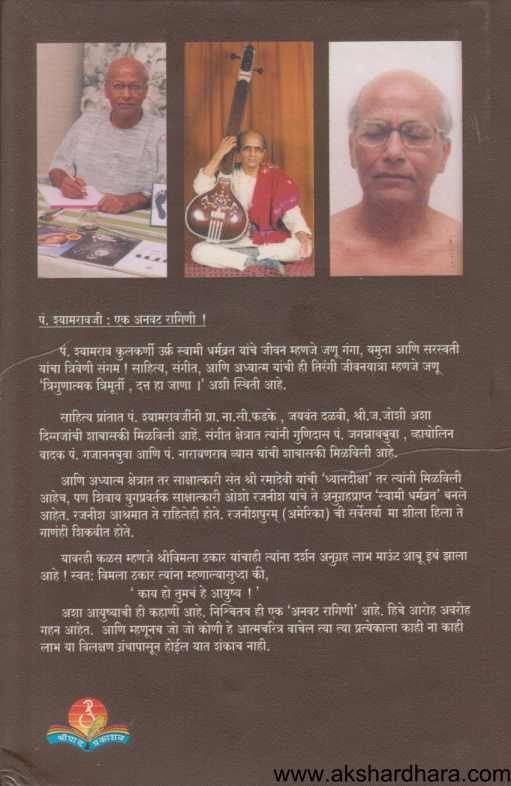 पं. श्यामरावजी : एक अनवट रागिणी !
पं. श्यामराव कुलकर्णी उर्फ स्वामी धर्मव्रत यांचे जीवन म्हणजे जणू गंगा, यमुना आणि सरस्वती
यांचा त्रिवेणी संगम ! साहित्य, संगीत, आणि अध्यात्म यांची ही तिरंगी जीवनयात्रा म्हणजे जणू
‘त्रिगुणात्मक त्रिमूर्ती , दत्त हा जाणा ।’ अशी स्थिती आहे.
साहित्य प्रांतात पं. श्यामरावजींनी प्रा. ना.सी.फडके , जयवंत दळवी, श्री.ज.जोशी अशा
दिग्गजांची शाबासकी मिळविली आहे. संगीत क्षेत्रात त्यांनी गुणिदास पं. जगन्नाथबुवा , व्हायोलिन
वादक पं. गजाननबुवा आणि पं. नारायणराव व्यास यांची शाबासकी मिळविली आहे.
आणि अध्यात्म क्षेत्रात तर साक्षात्कारी संत श्री रमादेवी यांची ‘ध्यानदीक्षा’ तर त्यांनी मिळविली
आहेच, पण शिवाय युगप्रवर्तक साक्षात्कारी ओशो रजनीश यांचे ते अनुग्रहप्राप्त ‘स्वामी धर्मव्रत’ बनले
आहेत. रजनीश आश्रमात ते राहिलेही होते. रजनीशपुरम् (अमेरिका) ची सर्वेसर्वा मा शीला हिला ते
गाणेंही शिकवीत होते.
यावरही कळस म्हणजे श्रीविमला ठकार यांचाही त्यांना दर्शन अनुग्रह लाभ माऊंट आबू इथं झाला
आहे ! स्वत: विमला ठकार त्यांना म्हणाल्यासुध्दा की,
‘ काय हो तुमचं हे आयुष्य ! ’
अशा आयुष्याची ही कहाणी आहे. निश्चितच ही एक ‘अनवट रागिणी’ आहे. हिचे आरोह अवरोह
गहन आहेत. आणि म्हणूनच जो जो कोणी हे आत्मचरित्र वाचेल त्या त्या प्रत्येकाला काही ना काही
लाभ या विलक्षण ग्रंथापासून होईल यात शंकाच नाही.
श्रीपाद प्रकाशन
www.akshardhara.com